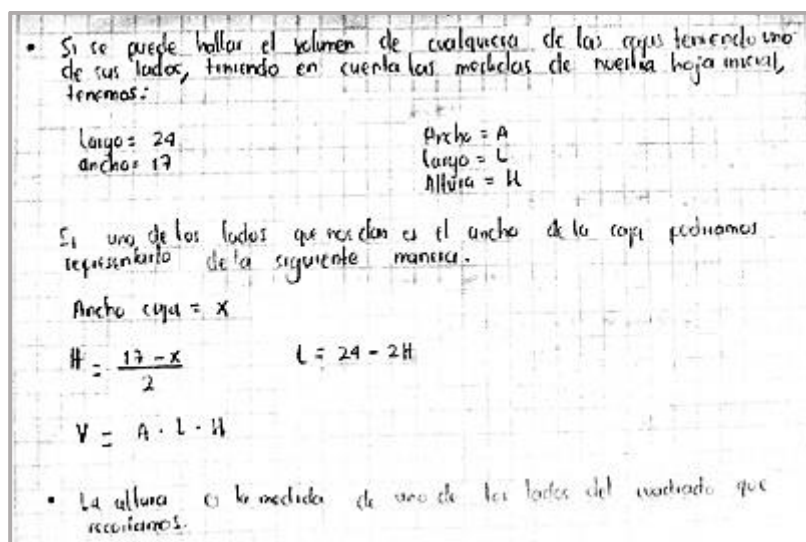 • Si se puede hallar el volumen de cualquiera de las cajas teniendo uno
de sus lados, teniendo en cuenta las medidas de nuestra hoja inicial,
tenemos:
Largo = 24
ancho = 17
Ancho = A
largo = L
Altura = H
Si uno de los lados que nos dan es el ancho de la caja podriamos
representarlo de la siguiente manera.
Ancho caja = x
H = 17 - x / 2
L = 24 - 2H
V = A · L · H
• La altura es la medida de uno de los lados del cuadrado que
recortamos.